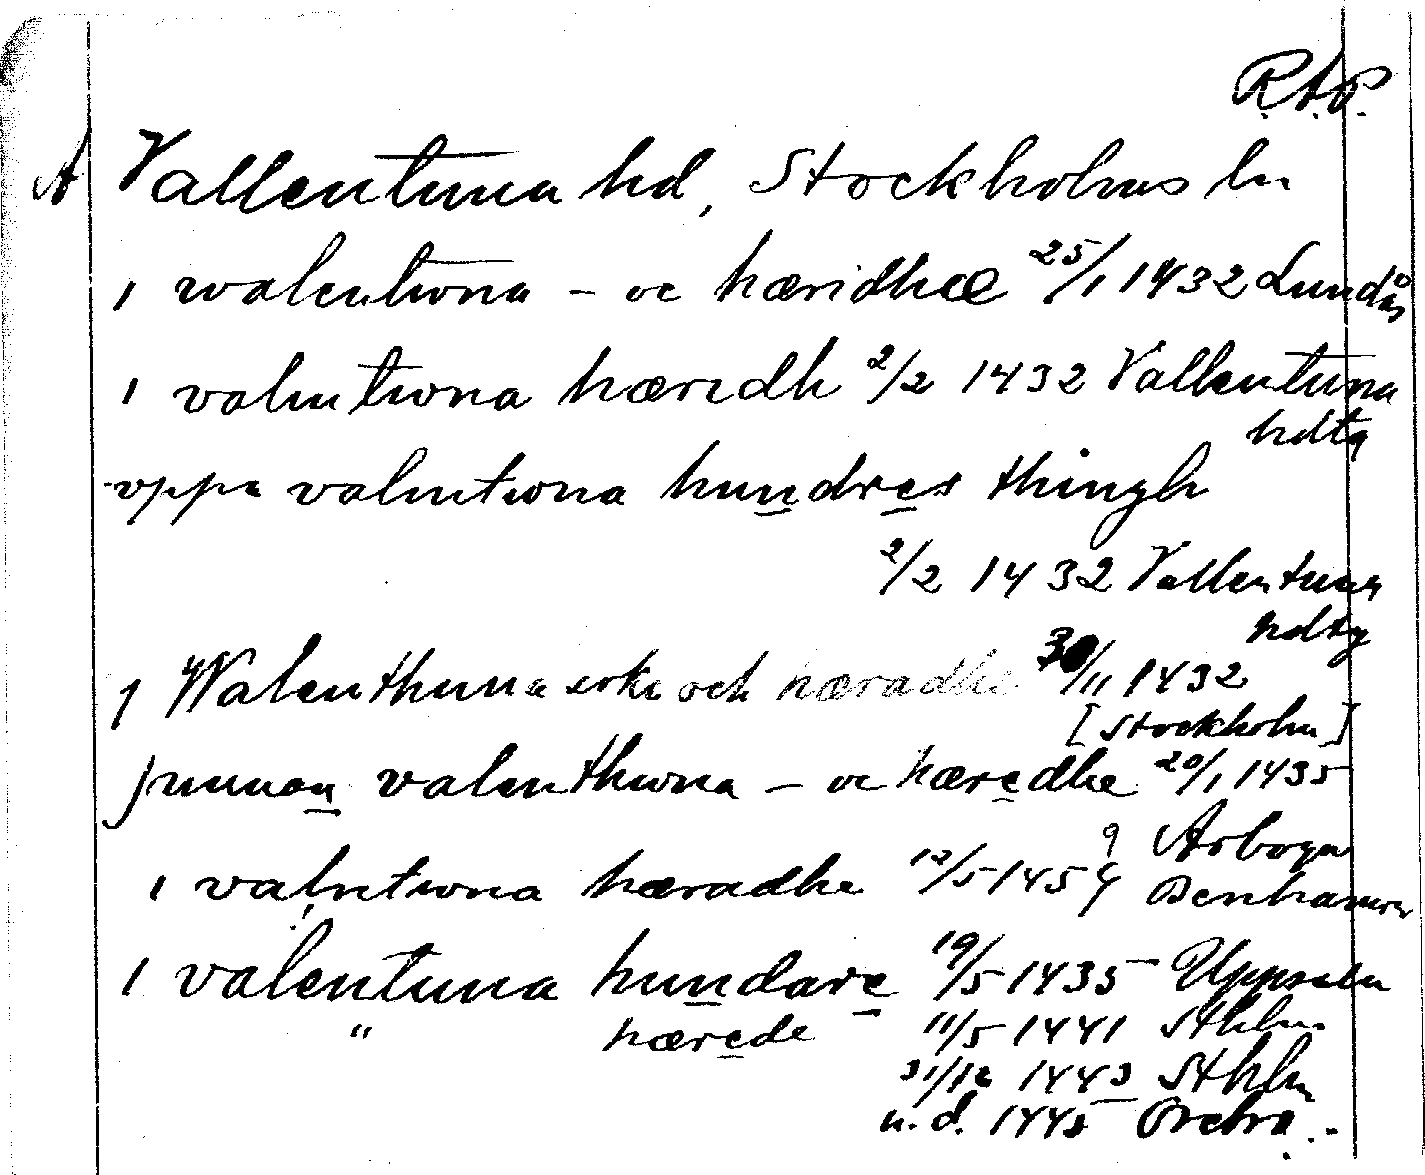 R.A.P.
A Vallentuna hd, Stockholms ln
i walentwna - oc hæridhæ 25/1 1432 Lundås
i valentwna hæridh 2/2 1432 Vallentuna
hdtg
vppa valentwna hundres thingh
2/2 1432 Vallentuna
hdtg
j Walenthuna sokn och hæradhe 30/11 1432
[Stockholm]
jnnnan valenthwna - oc hæredhe 20/1 1435
Arboga
i valentwna hæradhe 12/5 1459 Benhamra
i valentuna hundare 19/5 1435 Uppsala
" hærede 11/5 1441 Sthlm
31/12 1443 Sthlm
u.d. 1445 Örebro.